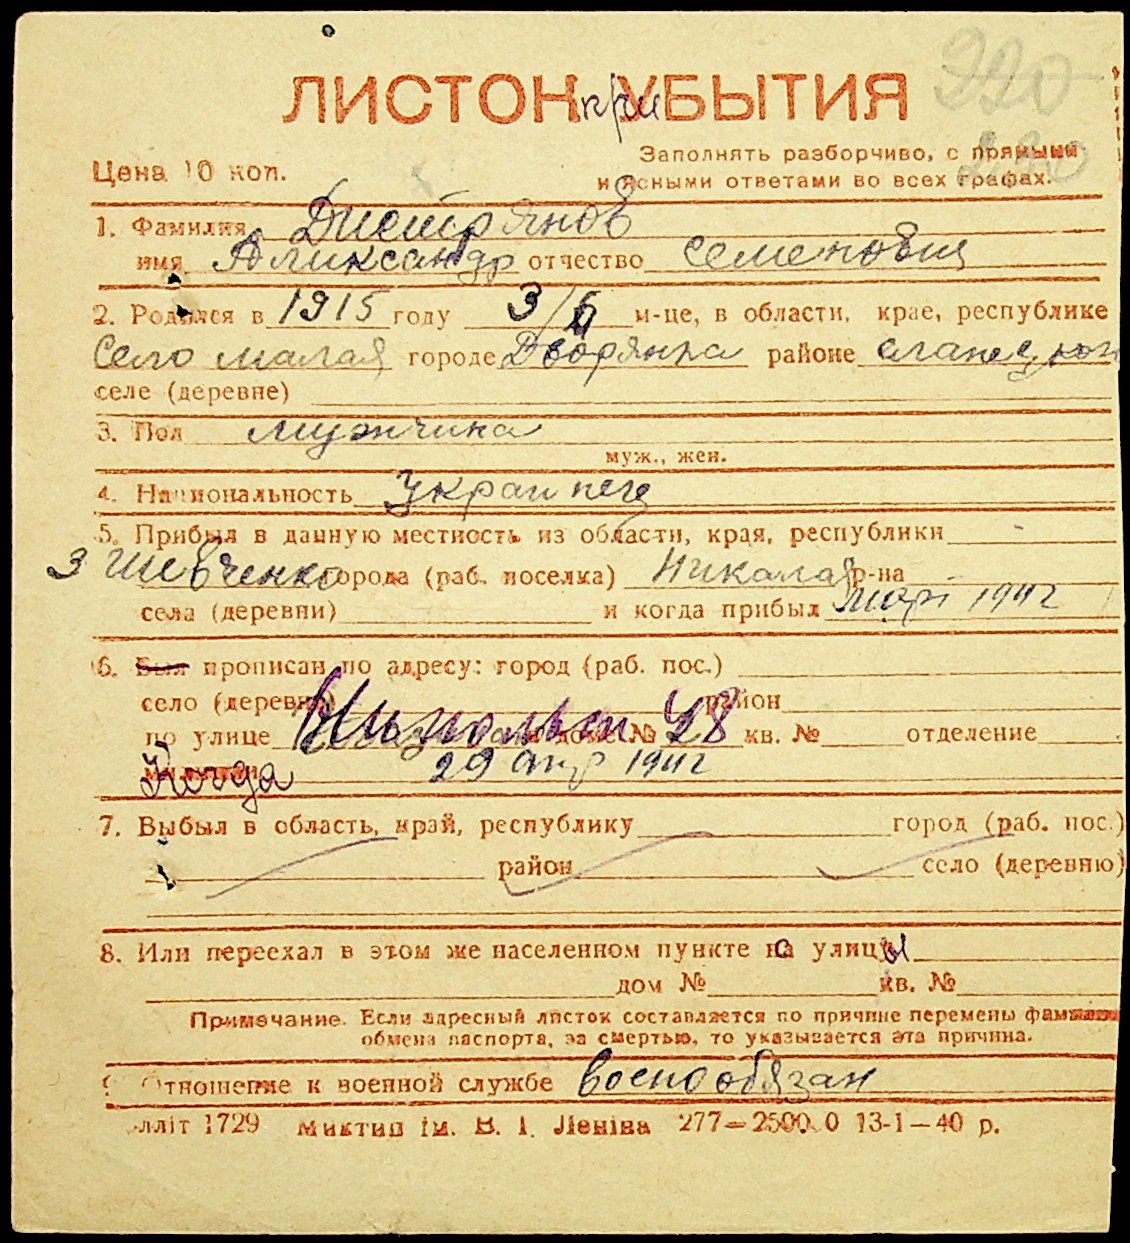 220
ЛИСТОК при УБЫТИЯ
Цена 10 коп.
Заполнять разборчиво, с прямыми
и ясными ответами во всех графах.
230
1. Фамилия Дмитрянов
имя Аликсандр отчество Семенович
2. Родился в 1915 году 3/5 м-це, в области, крае, республике
Село малая городе Дворянка районе
селе (деревне)
3. Пол мужчина
муж., жен.
4. Национальность Украинец
5. Прибыл в данную местность из области, края, республики
З Шевченко города (раб. поселка) Никалаев р-на
села (деревни) и когда прибыл март 1942
6. Был прописан по адресу: город (раб. пос.)
село (деревня) район
по улице Никольск дом № 48 кв. № отделение
милиции Когда 29 апр 1942
7. Выбыл в область, край, республику город (раб. пос.)
район село (деревню)
8. Или переехал в этом же населенном пункте на улицы
дом № кв. №
Примечание. Если адресный листок составляется по причине перемены фамилии
обмена паспорта, за смертью, то указывается эта причина.
9. Отношение к военной службе военообязан
лліт 1729 Миктип ім. В. І. Леніна 277—2500.0 13-1—40 р.